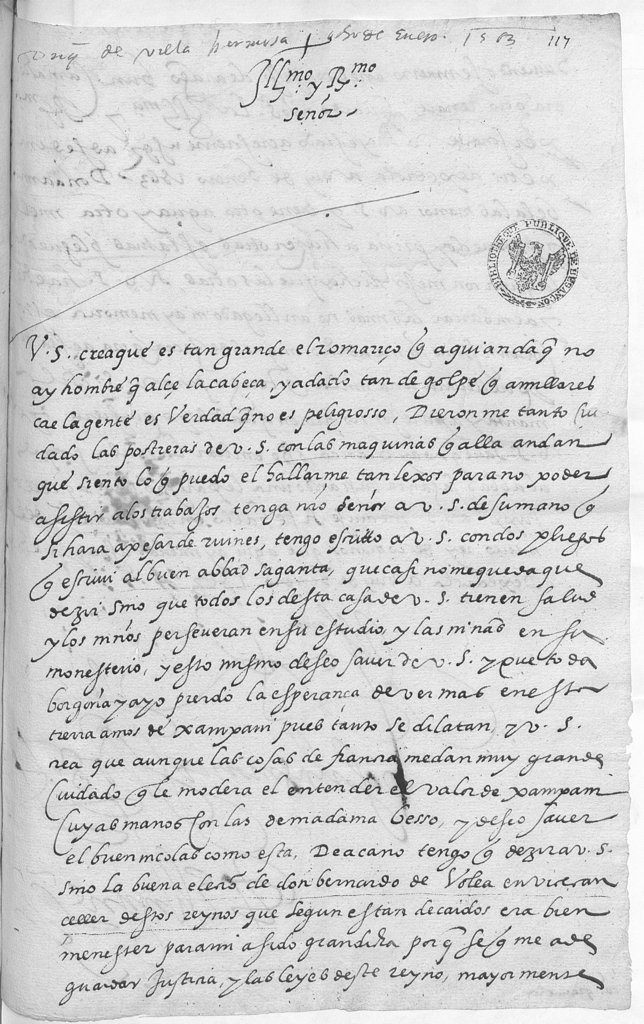 Duq de villa hermosa 9 de Enero 1563 117
Illmo y Rmo
señor
BIBLIOTHEQUE PUBLIQUE DE BESANÇON
V. S. crea que es tan grande el romatiço q aqui anda q no
ay hombre q alçe la cabeça, y a dado tan de golpe q a millares
cae la gente es Verdad q no es peligrosso, Dieron me tanto Cui
dado las postreras de v. s. con las maquinas q alla andan
que siento lo q puedo el hallarme tan lexos para no poder
asistir a los trabajos tenga nro señor a v. s. de su mano q
si hara a pesar de ruines, tengo escritto a v. s. con dos pliegos
q escrivi al buen abbad saganta, que casi no me queda que
dezir sino que todos los desta casa de v. s. tienen salud
y los niños perseveran en su estudio, y las niñas en su
monesterio, y esto mismo deseo saver de v. s. y que toda
borgoña ya yo pierdo la esperança de ver mas en esta
tierra a mos de xampani pues tanto se dilatan, y v. s.
rea que aunque las cosas de francia me dan muy grande
Cuidado q le modera el entender el valor de xampani
Cuyas manos con las de madama besso, y deseo saver
el buen nicolas como esta, De aca no tengo q dezir a v. s.
sino la buena eleon de don bernardo de Bolea en vicecan
celler destos reynos que segun estan decaidos era bien
menester para mi a sido grandissa porq se q me a de
guardar Justicia, y las leyes deste reyno, mayormente